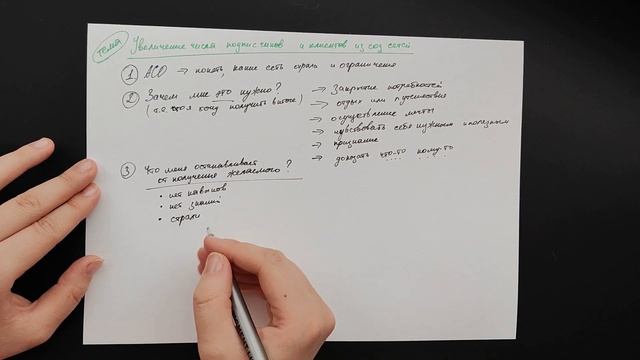 Тема Увеличение числа подписчиков и клиентов из соц сетей
1 АСО → понять, какие есть страхи и ограничения
2 Зачем мне это нужно?
(т.е. что я хочу получить в итоге)
→ Закрытие потребностей
→ отдых или путешествия
→ осуществление мечты
→ чувствовать себя нужным и полезным
→ признание
→ доказать что-то кому-то
3 Что меня останавливает
от получения желаемого?
• нет навыков
• нет знаний
• страхи